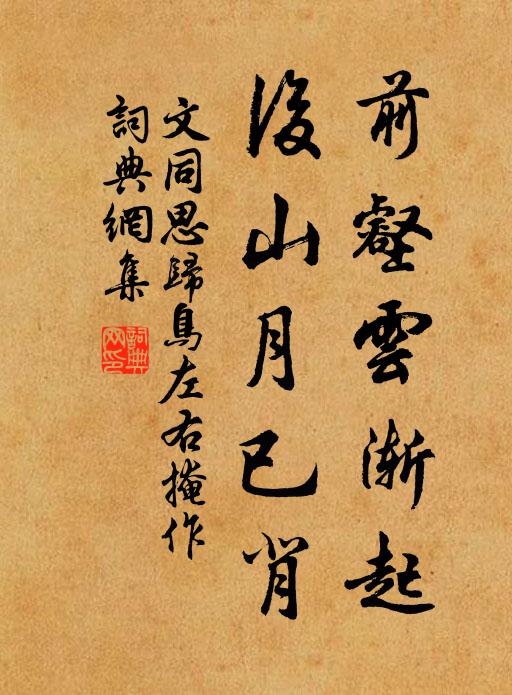 前壑雲漸起
後山月已肖
文同思歸鳥左右掩作
詞典網集
詞典網印